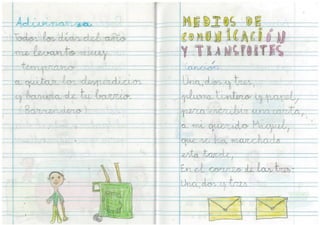 Adivinanza
Todos los días del año
me levanto muy
temprano
a quitar los desperdicios
y basura de tu barrio.
(Barrendero)
MEDIOS DE
COMUNICACIÓN
Y TRANSPORTES
Canción
Una, dos y tres,
pluma, tintero y papel,
para escribir una carta,
a mi querido Miguel,
que se ha marchado
esta tarde,
En el correo de las tres.
Una, dos y tres